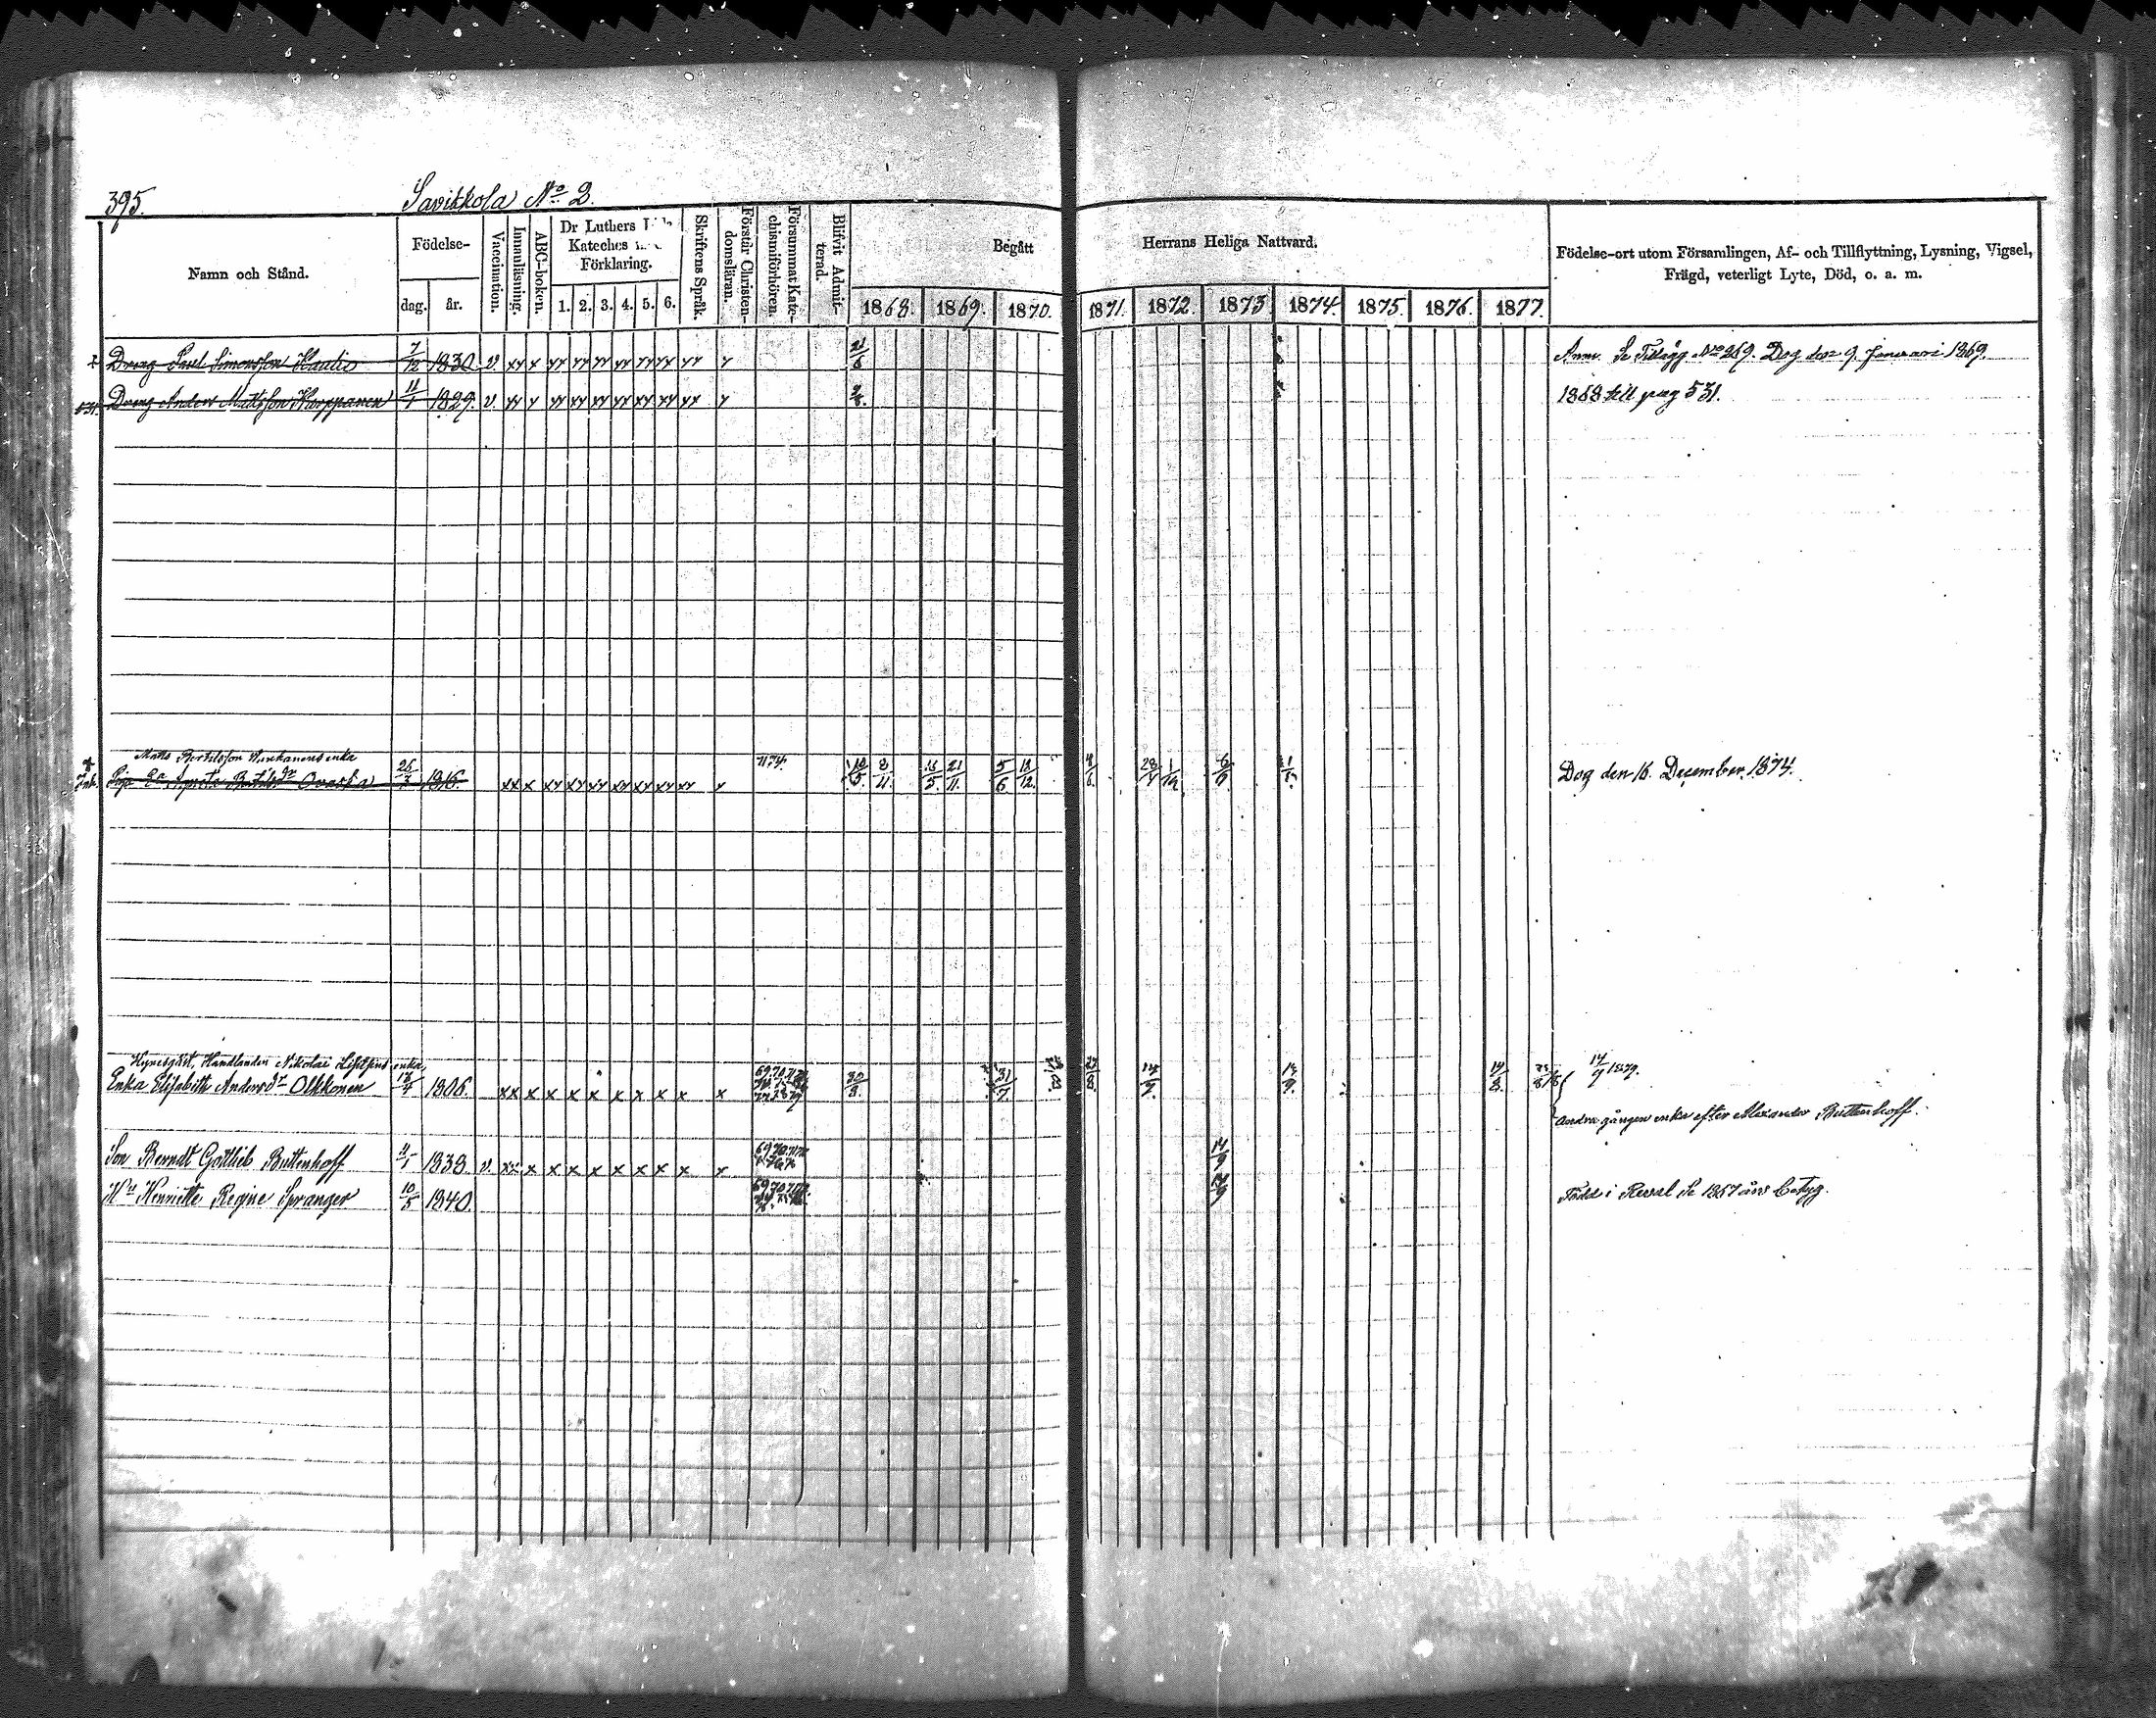 395.
Savikkola No 2.
Namn och Stånd.
Födelse-
dag.
år.
Vaccination.
Innanläsning.
ABC-boken.
Dr Luthers
Kateches
Förklaring.
1. 2. 3. 4. 5. 6.
Skriftens Språk.
Förstår Christen-
domsläran.
Försummat Kate-
chismiförhören.
Blifvit Admit-
terad.
Begått
Herrans Heliga Nattvard.
1868. 1869. 1870. 1871. 1872. 1873. 1874. 1875. 1876. 1877.
Födelse-ort utom Församlingen, Af- och Tillflyttning, Lysning, Vigsel,
Frägd, veterligt Lyte, Död, o. a. m.
Dreng Paul Simonsson 7/12 1830. v. xx x xx xx xx xx xx xx xx x 21/6 Anm. Se Tillägg No 269. Dog den 9. Januari 1869.
531 Dreng Anders Mattsson Karppanen 11/1 1829. v. xx x xx xx xx xx xx xx xx x 1868 till pag 531.
Matts Bertilsson enka
Inh. Agneta Ovaska 1816. xx x xx xx xx xx xx xx xx x 8/11. 21/11. 5/6 18/12. 6/9 Dog den 16. December 1874.
Hyresgäst, Handlanden Nikolai enka,
Enka Elisabeth Andersdr Olkkonen 1806. xx x x x x x x x x x 30/8. 31/7. 14/9. 14/8. 14/9 1879.
Andra gången enka efter Alexander Buttenhoff.
Son Berndt Gottlieb Buttenhoff 1838. v. xx x x x x x x x x x 14/9
Hu Henriette Regine Spranger 10/5 1840. 14/9 Född i Reval Se 1867 års betyg.